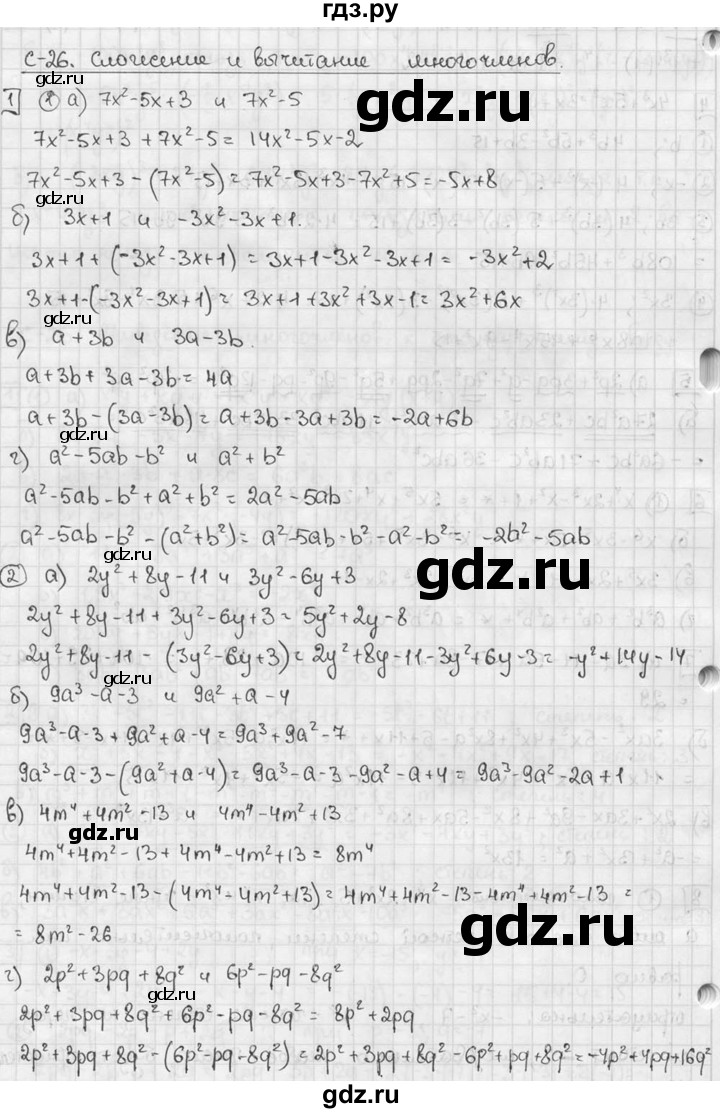 гдз.ру
С-26. Сложение и вычитание многочленов.
1 ① а) 7x²-5x+3 и 7x²-5
7x²-5x+3+7x²-5=14x²-5x-2
7x²-5x+3-(7x²-5)=7x²-5x+3-7x²+5=-5x+8
gdz.ru
б) 3x+1 и -3x²-3x+1.
3x+1+(-3x²-3x+1)=3x+1-3x²-3x+1=-3x²+2
gdz.ru
3x+1-(-3x²-3x+1)=3x+1+3x²+3x-1=3x²+6x
gdz.ru
в) a+3b и 3a-3b.
a+3b+3a-3b=4a
gdz.ru
a+3b-(3a-3b)=a+3b-3a+3b=-2a+6b
gdz.ru
г) a²-5ab-b² и a²+b²
a²-5ab-b²+a²+b²=2a²-5ab
a²-5ab-b²-(a²+b²)=a²-5ab-b²-a²-b²=-2b²-5ab
gdz.ru
② а) 2y²+8y-11 и 3y²-6y+3
2y²+8y-11+3y²-6y+3=5y²+2y-8
gdz.ru
2y²+8y-11-(3y²-6y+3)=2y²+8y-11-3y²+6y-3=-y²+14y-14
gdz.ru
б) 9a³-a-3 и 9a²+a-4
9a³-a-3+9a²+a-4=9a³+9a²-7
gdz.ru
9a³-a-3-(9a²+a-4)=9a³-a-3-9a²-a+4=9a³-9a²-2a+1
в) 4m⁴+4m²-13 и 4m⁴-4m²+13
gdz.ru
4m⁴+4m²-13+4m⁴-4m²+13=8m⁴
gdz.ru
4m⁴+4m²-13-(4m⁴-4m²+13)=4m⁴+4m²-13-4m⁴+4m²-13=
=8m²-26
gdz.ru
г) 2p²+3pq+8q² и 6p²-pq-8q²
gdz.ru
2p²+3pq+8q²+6p²-pq-8q²=8p²+2pq
2p²+3pq+8q²-(6p²-pq-8q²)=2p²+3pq+8q²-6p²+pq+8q²=-4p²+4pq+16q²
gdz.ru